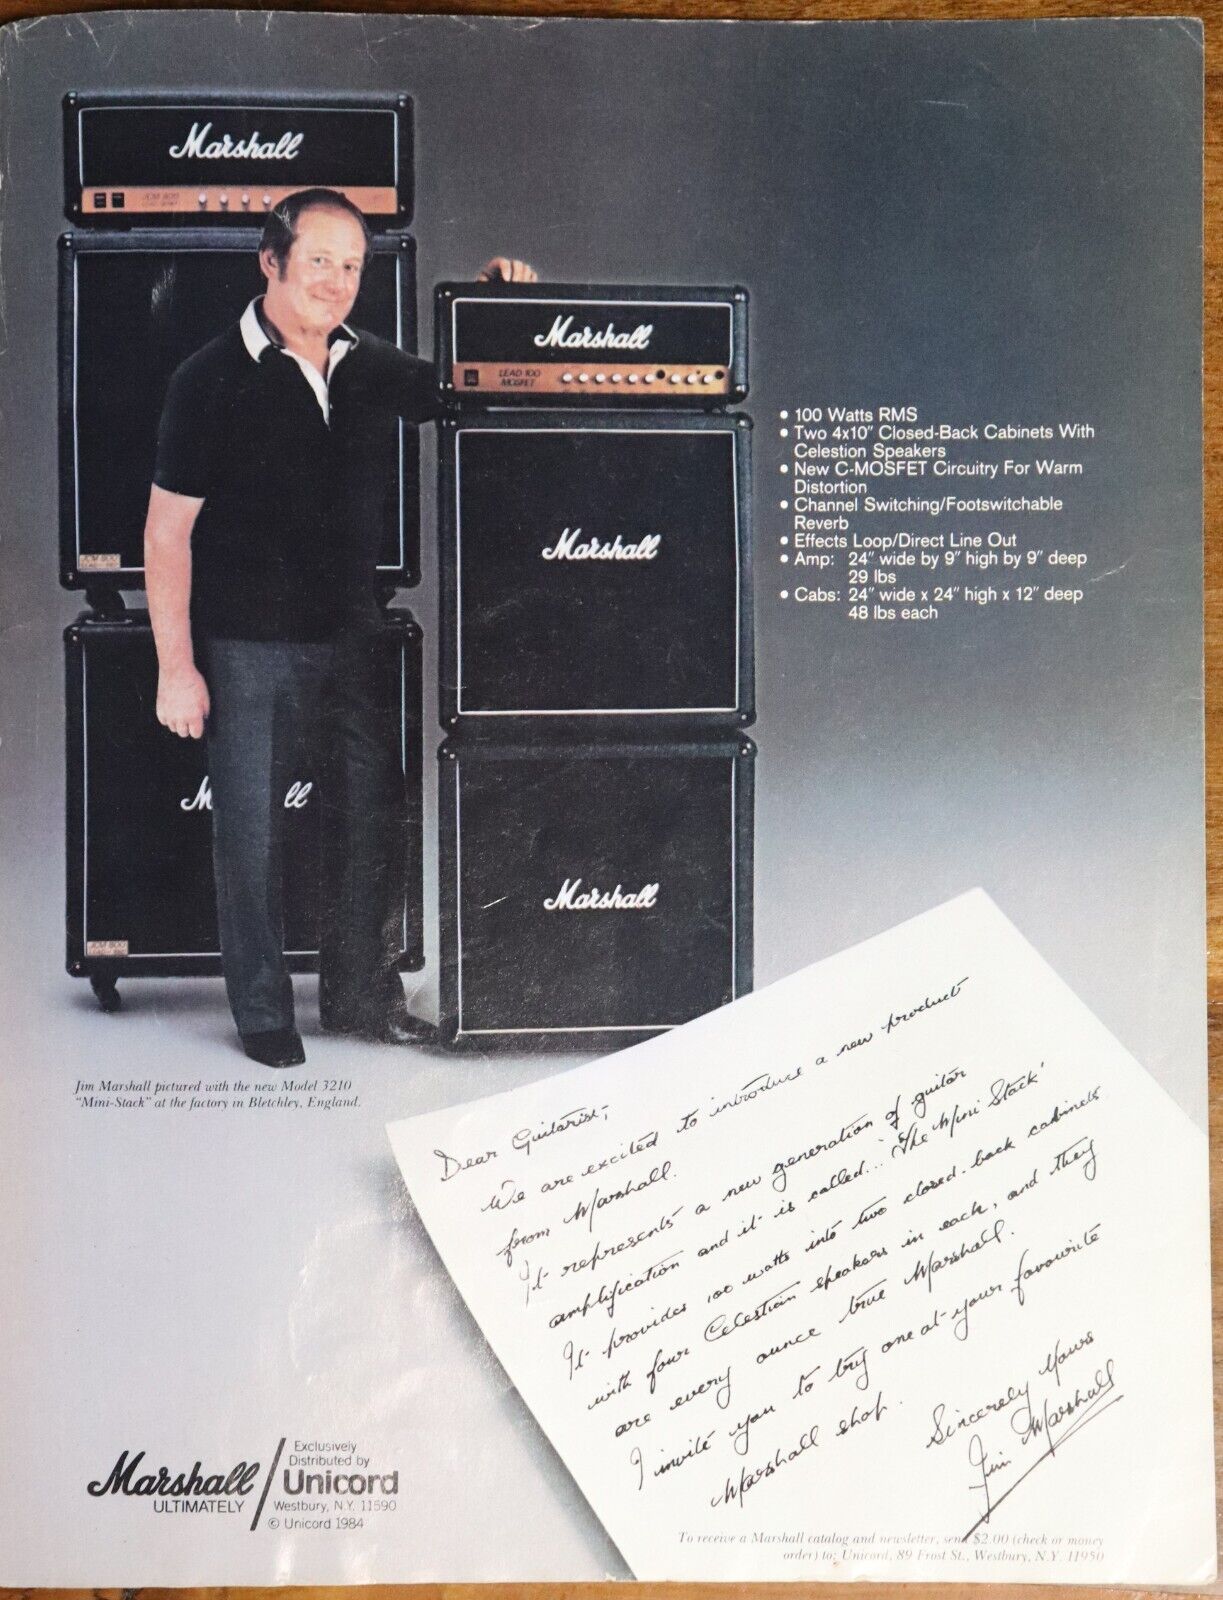 Marshall
JCM 800
LEAD SERIES
Marshall
LEAD 100
MOSFET
Marshall
JCM 800
M ll
JCM 800
Marshall
• 100 Watts RMS
• Two 4x10" Closed-Back Cabinets With
Celestion Speakers
• New C-MOSFET Circuitry For Warm
Distortion
• Channel Switching/Footswitchable
Reverb
• Effects Loop/Direct Line Out
• Amp: 24" wide by 9" high by 9" deep
29 lbs
• Cabs: 24" wide x 24" high x 12" deep
48 lbs each
Jim Marshall pictured with the new Model 3210
"Mini-Stack" at the factory in Bletchley, England.
Dear Guitarist,
We are excited to introduce a new product
from Marshall.
It represents a new generation of guitar
amplification and it is called... 'The Mini Stack'
It provides 100 watts into two closed-back cabinets
with four Celestian speakers in each, and they
are every ounce true Marshall.
I invite you to try one at your favourite
Marshall shop.
Sincerely Yours
Jim Marshall
To receive a Marshall catalog and newsletter, send $2.00 (check or money
order) to: Unicord, 89 Frost St., Westbury, N.Y. 11950
Marshall
ULTIMATELY
Exclusively
Distributed by
Unicord
Westbury, N.Y. 11590
© Unicord 1984